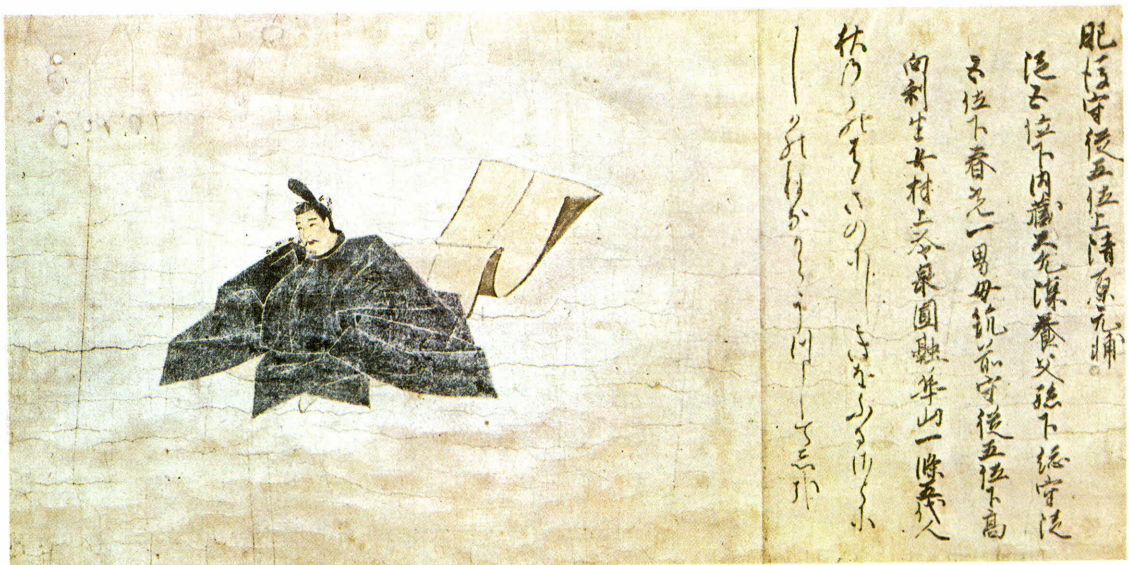 肥後守従五位上清原元輔
従五位下内蔵大允深養父孫下総守従
五位下春光一男母筑前守従五位下高
向利生女村上冷泉圓融華山一條五代人
秋乃ゝのはきのにしきをふるさとに
しかのねなからうつしてしかな